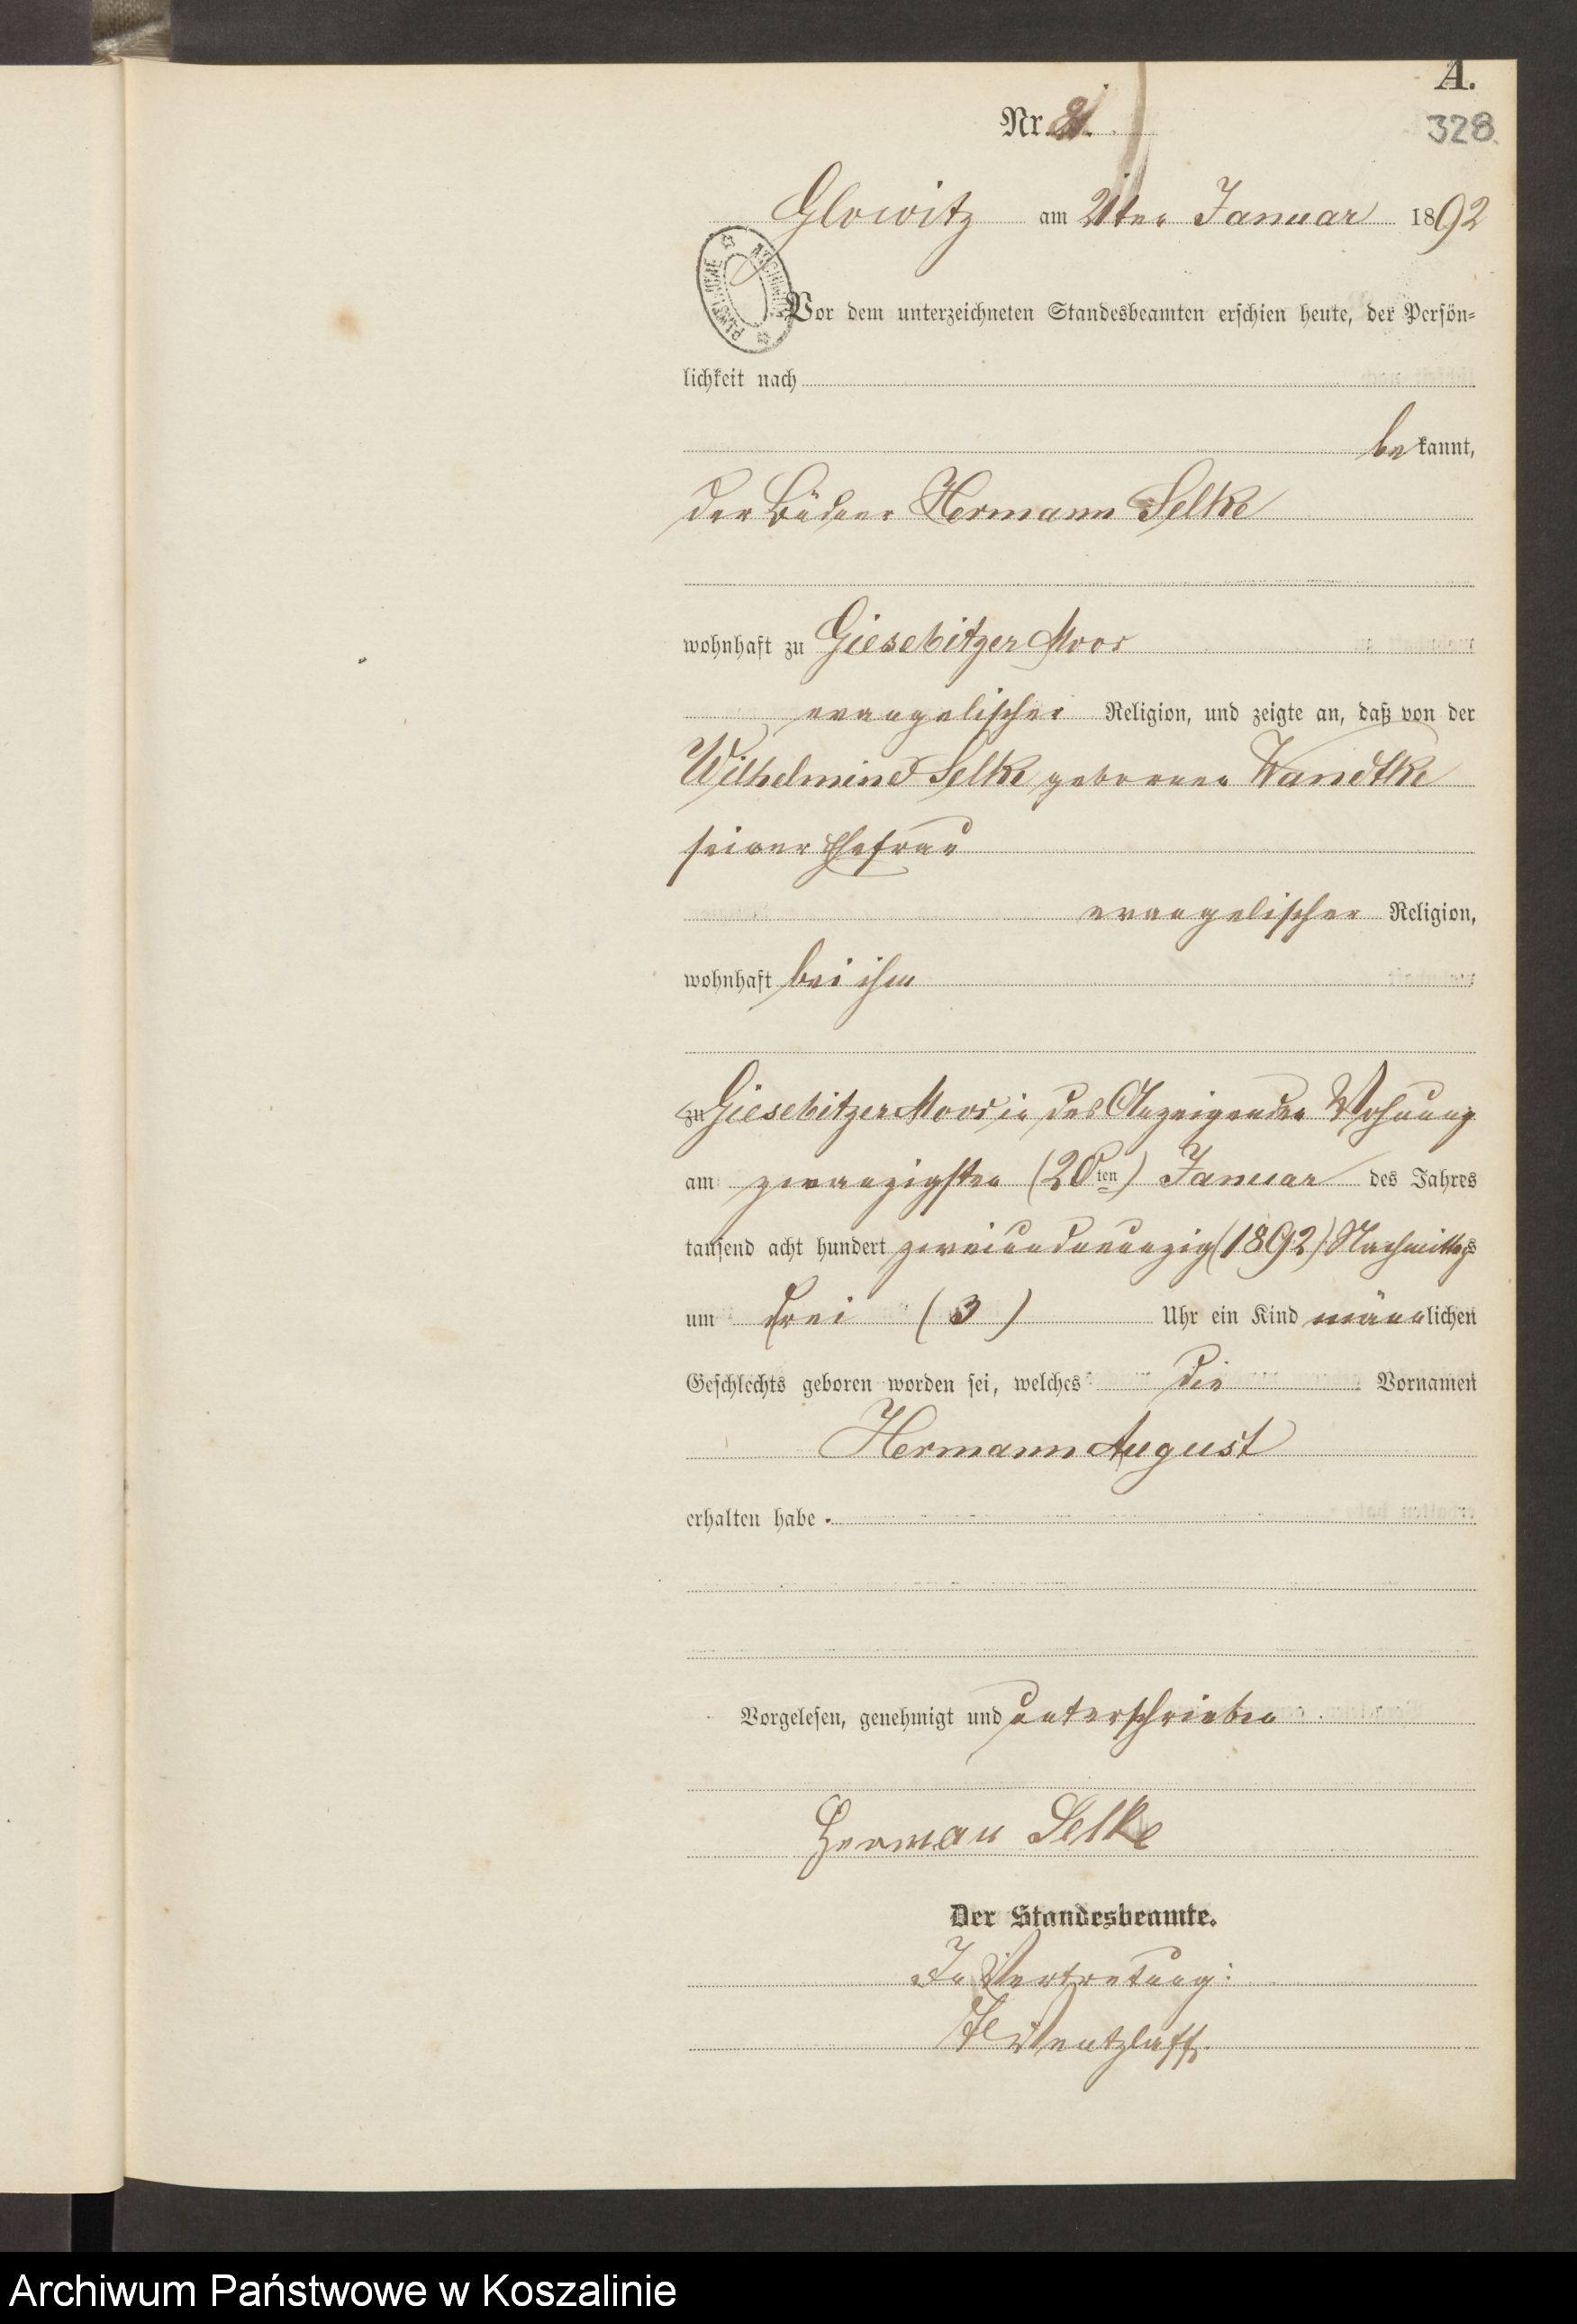 A.
Nr. 21.
328.
Glowitz am 21ten Januar 1892
Vor dem unterzeichneten Standesbeamten erschien heute, der Persön=
lichkeit nach
bekannt,
der Büdner Hermann Selke
wohnhaft zu Giesebitzer Moor
evangelischer Religion, und zeigte an, daß von der
Wilhelmine Selke geborenen Wandtke
seiner Ehefrau
evangelischer Religion,
wohnhaft bei ihm
zu Giesebitzer Moor in des Anzeigenden Wohnung
am zwanzigsten (20ten) Januar des Jahres
tausend acht hundert zweiundneunzig (1892) Nachmittags
um drei (3) Uhr ein Kind männlichen
Geschlechts geboren worden sei, welches die Vornamen
Hermann August
erhalten habe.
Vorgelesen, genehmigt und unterschrieben
Herman Selke
Der Standesbeamte.
In Vertretung:
Wentzlaff.
Archiwum Państwowe w Koszalinie